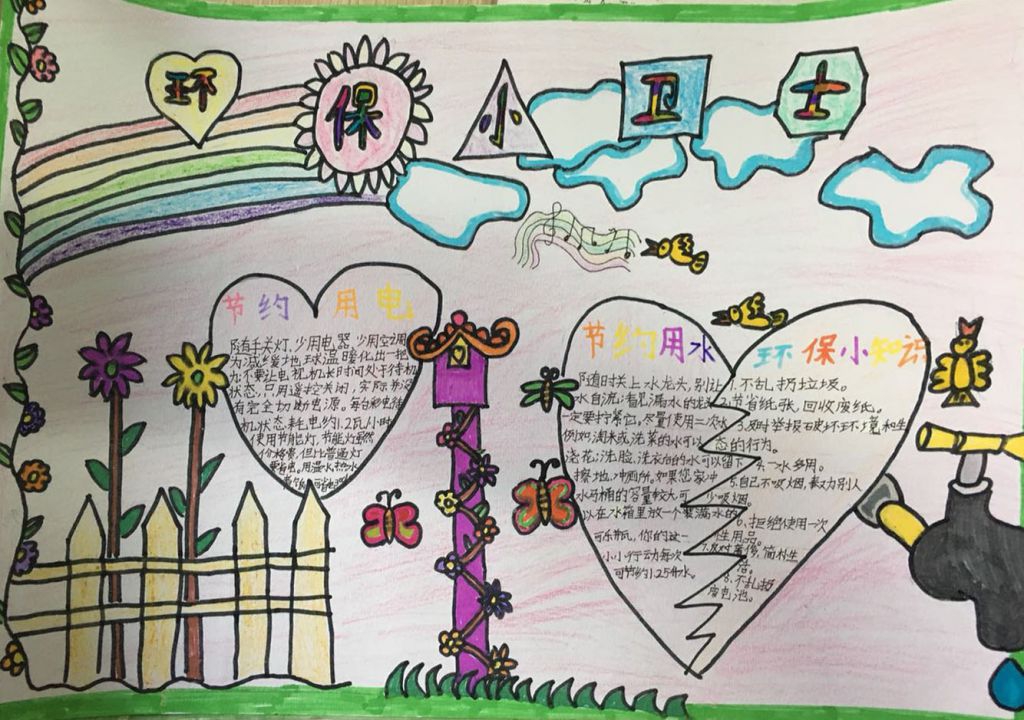 环保小卫士
节约用电
随手关灯,少用电器,少用空调
为减缓地球温暖化出一把
力;不要让电视机长时间处于待机
状态,只用遥控关闭,实际并没
有完全切断电源。每台彩电待
机状态耗电约1.2瓦/小时
使用节能灯,节能灯虽然
价格贵,但比普通灯
节约用水
随时关上水龙头,别让
水自流;看见漏水的龙头
一定要拧紧它。尽量使用二次水
例如,淘米或洗菜的水可以
浇花;洗脸、洗衣后的水可以留下
擦地、冲厕所。如果您家冲
水马桶的容量较大,可
以在水箱里放一个装满水的
可乐瓶,你的这一
小小行动每次
可节约1.25升水。
环保小知识
1.不乱扔垃圾。
2.节省纸张,回收废纸。
3.及时举报破坏环境和生
态的行为。
4.一水多用。
5.自己不吸烟,敬力为别人
少吸烟。
6.拒绝使用一次
性用品。
7.反对奢侈,简朴生
活。
8.不乱扔
废电池。